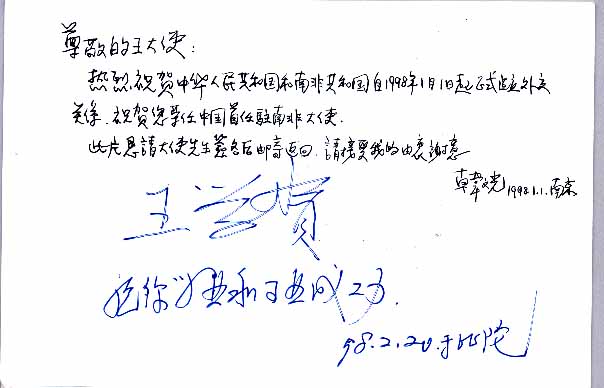 尊敬的王大使：
热烈祝贺中华人民共和国和南非共和国自1998年1月1日起正式建立外交
关系，祝贺您荣任中国首任駐南非大使．
此片恳請大使先生簽名后邮寄返回，請接受我的由衷謝意
1998.1.1.南京
王学贤
祝你
成功．
98.2.20.于比陀